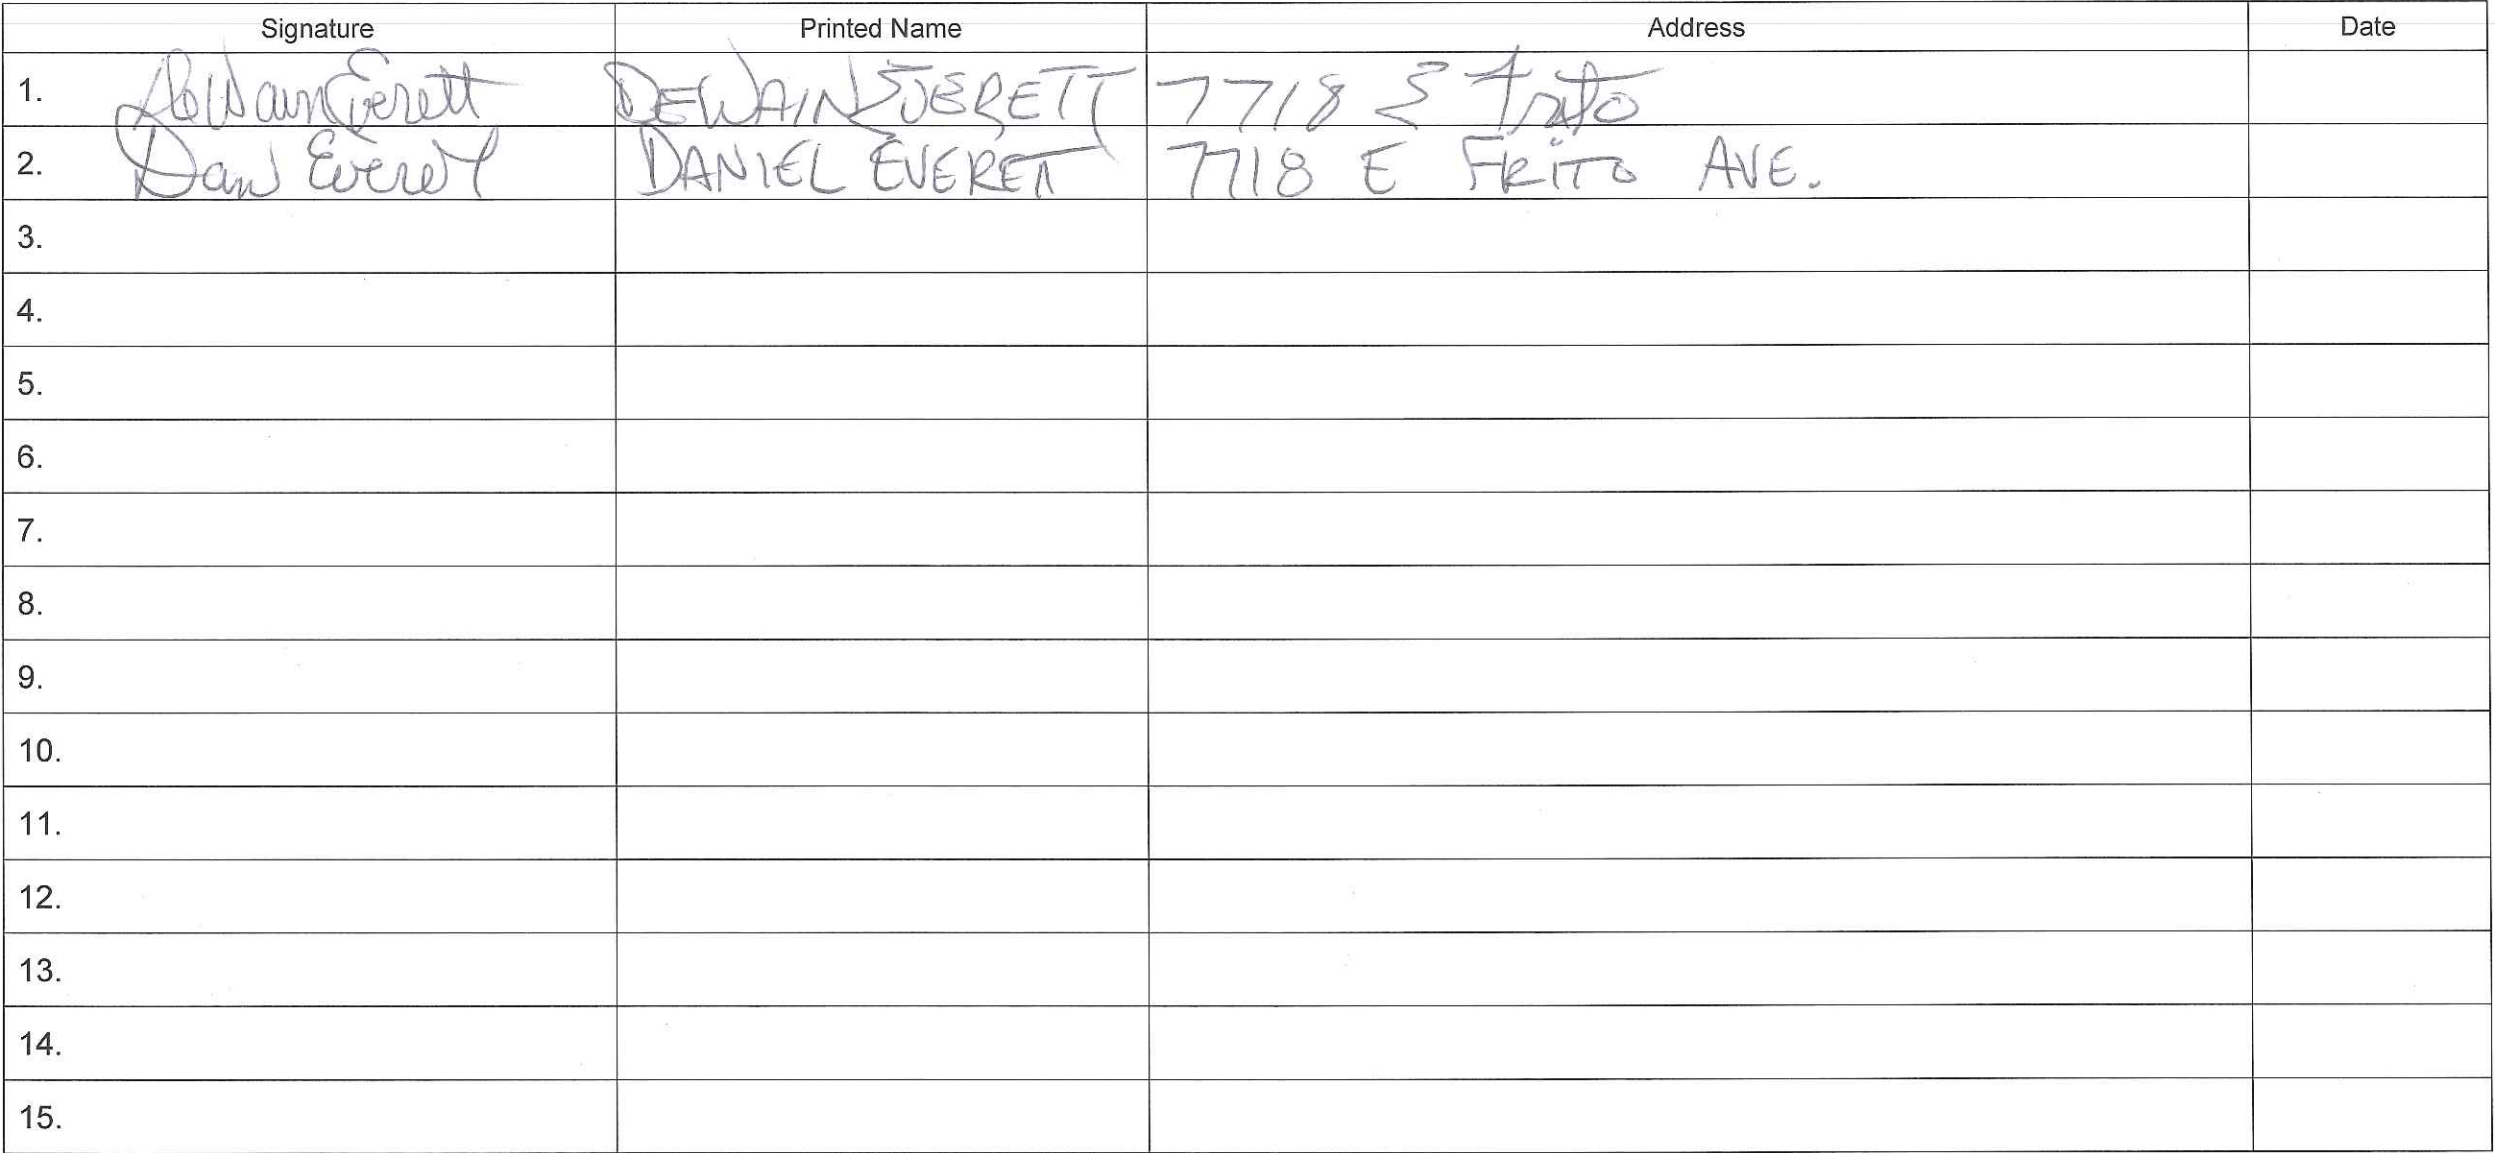 Signature Printed Name Address Date
1. DeWain Everett DEWAIN EVERETT 7718 E Frito
2. Dan Everett DANIEL EVERETT 7718 E FRITO AVE.
3.
4.
5.
6.
7.
8.
9.
10.
11.
12.
13.
14.
15.